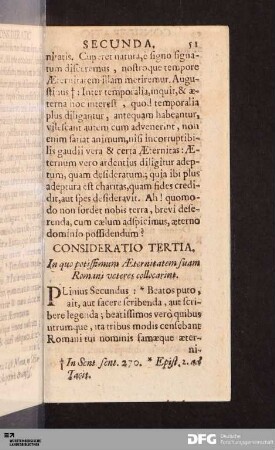 SECUNDA. 51
nitatis. Cur eret natura, e signo signa-
tum disceremus, nostroque tempore
Æternitatem illam metiremur. Augu-
stinus †: Inter temporalia, inquit, & æ-
terna hoc interest, quod temporalia
plus diligantur, antequam habeantur,
vilescant autem cum advenerint, non
enim satiat animum, nisi incorruptibi-
lis gaudii vera & certa Æternitas: Æ-
ternum vero ardentius diligitur adep-
tum, quam desideratum; quia ibi plus
adeptura est charitas, quam fides credi-
dit, aut spes desideravit. Ah! quomo-
do non sordet nobis terra, brevi dese-
renda, cum cælum adspicimus, æterno
dominio possidendum?
CONSIDERATIO TERTIA,
In quo potissimum Æternitatem suam
Romani veteres collocarint.
PLinius Secundus: * Beatos puto,
ait, aut facere scribenda, aut scri-
bere legenda; beatissimos vero quibus
utrumque, ita tribus modis censebant
Romani sui nominis famæque æter-
ni-
† In Sent. sent. 270. * Epist. 2. ad
Tacit.
DFG Deutsche
Forschungsgemeinschaft